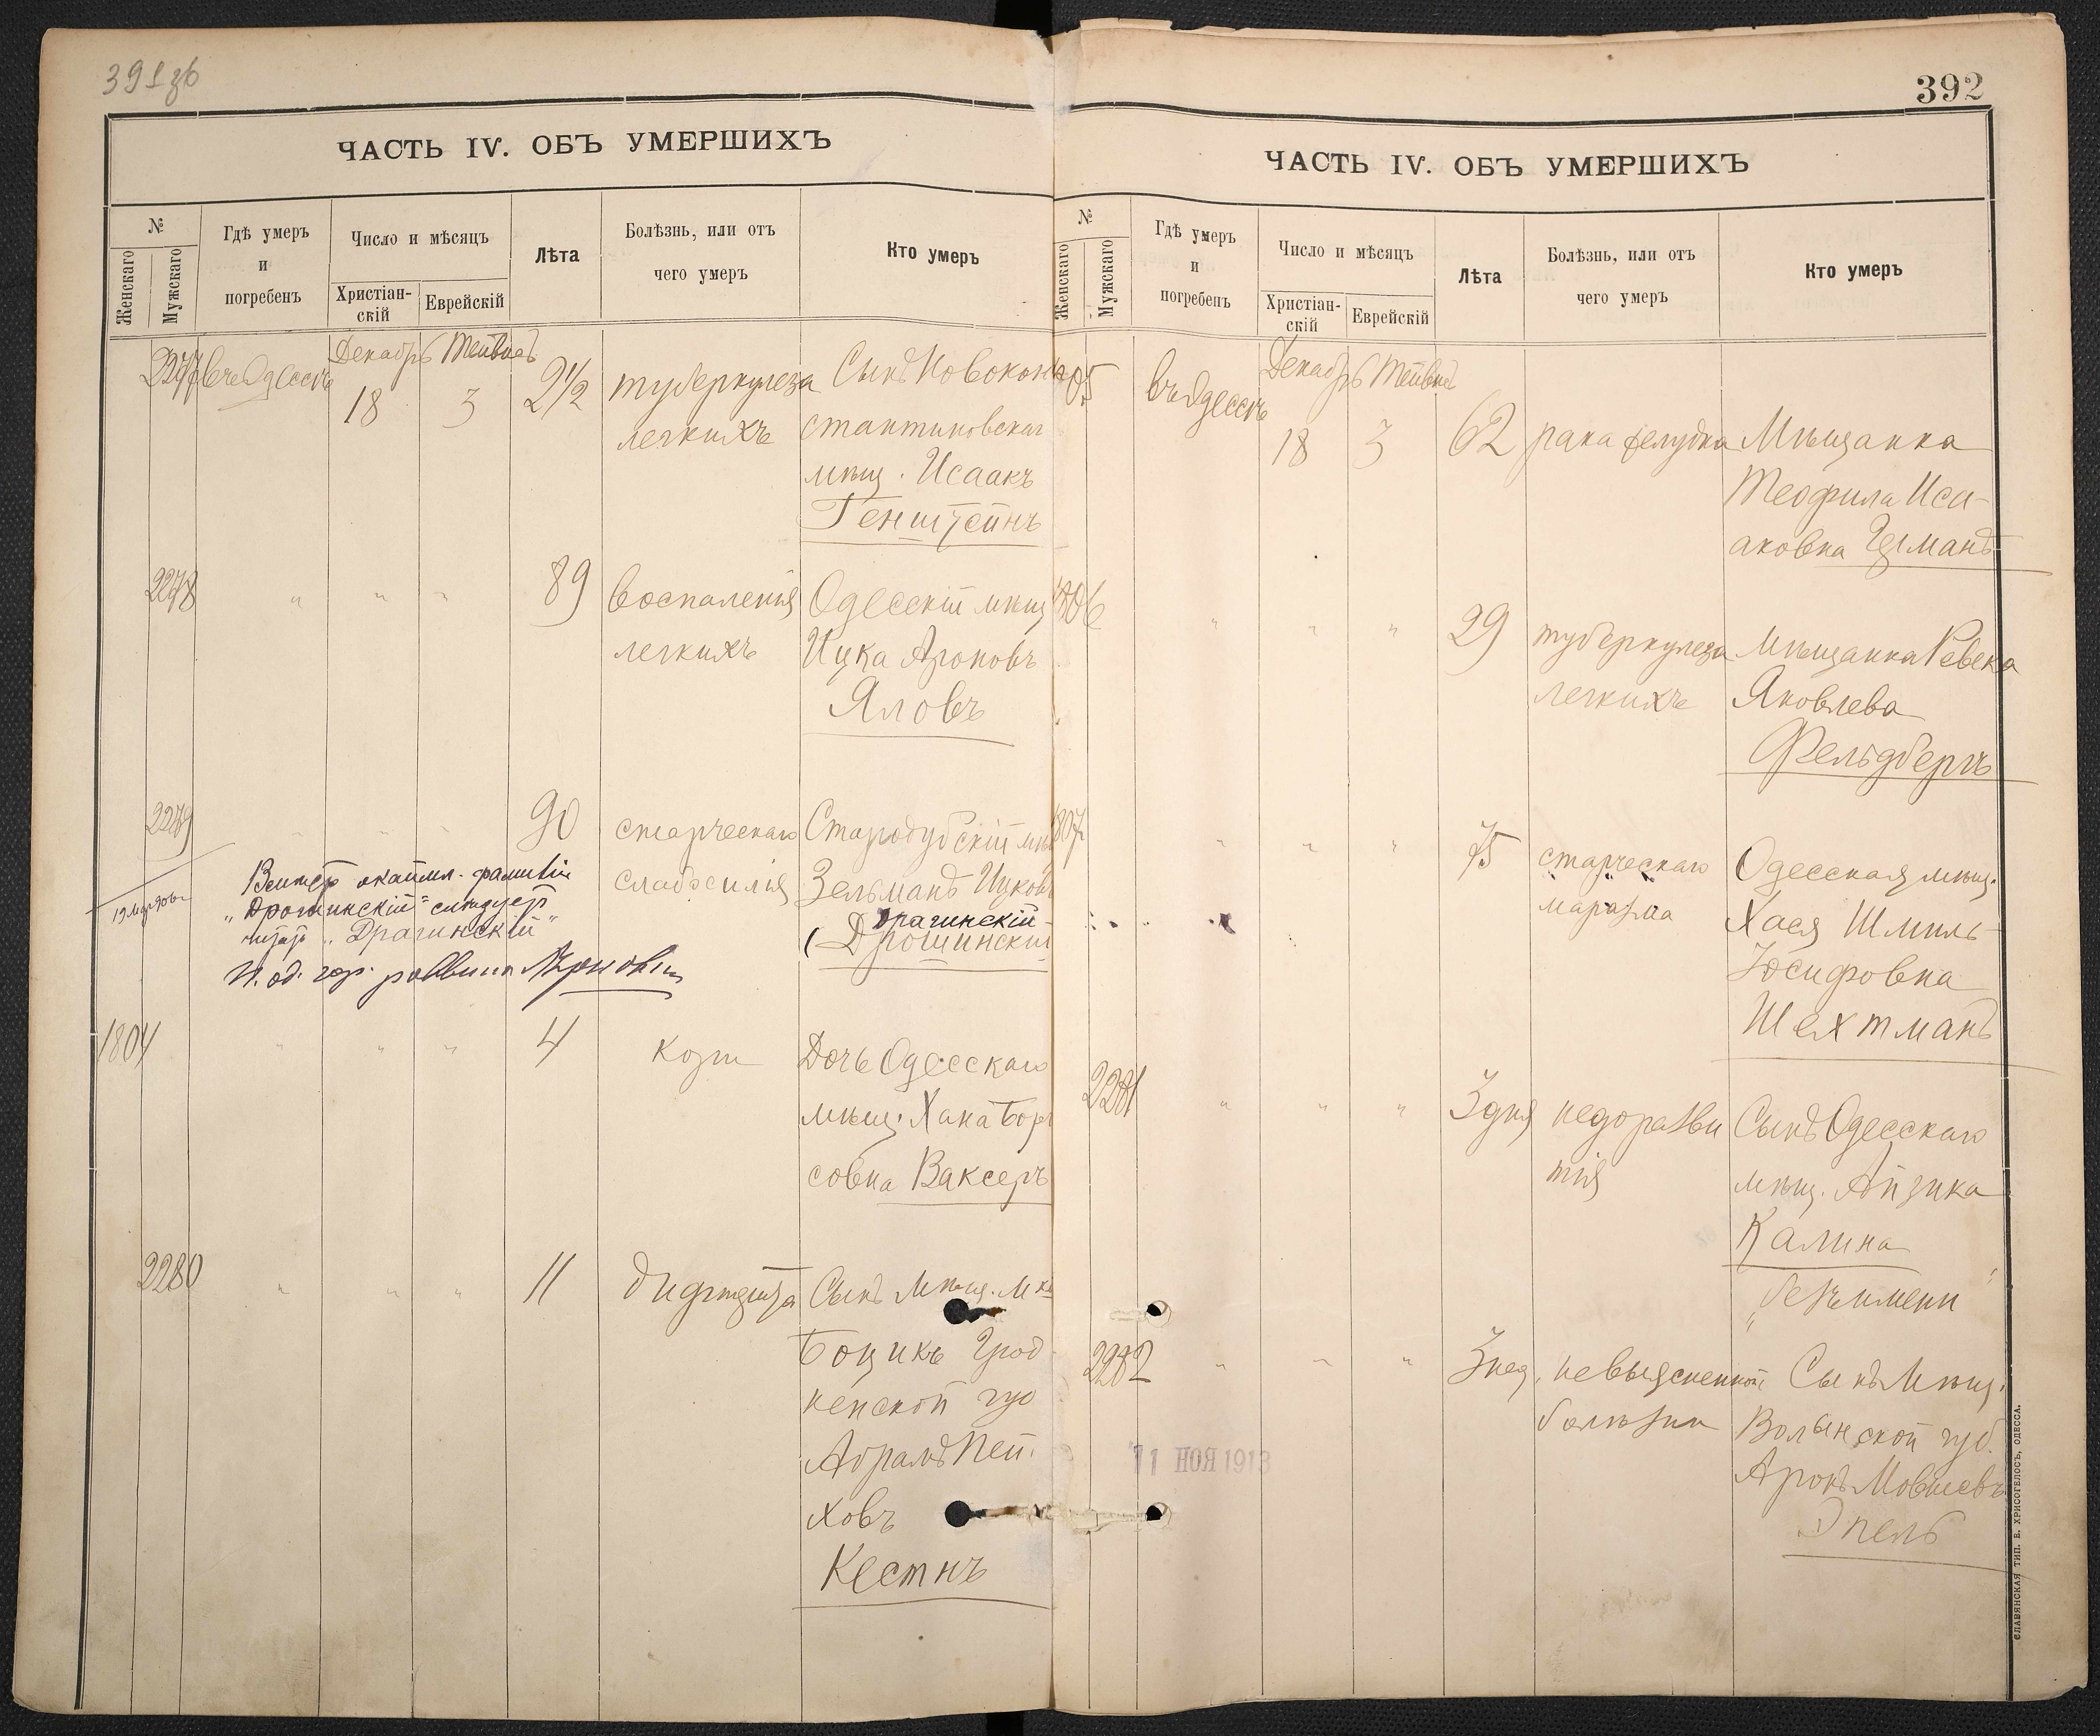 391 зб
ЧАСТЬ IV. ОБЪ УМЕРШИХЪ
№
Женскаго
Мужскаго
Гдѣ умеръ
и
погребенъ
Число и мѣсяцъ
Христіан-
скій
Еврейскій
Лѣта
Болѣзнь, или отъ
чего умеръ
Кто умеръ
2277 въ Одессѣ Декабрь 18 Тейвесъ 3 2 1/2 туберкулеза Сынъ Новокон
легкихъ стантиновскаг
мѣщ. Исаакъ
Генштейнъ
2278 " " " 89 воспаленія Одесскій мѣщ
легкихъ Ицка Ароновъ
Яловъ
2279 " " " 90 старческаго Стародубскій мѣщ
слабосилія Зельманъ Ицков
Драгинскій
(Дрошинскій
"Дрошинскій" слѣдуетъ
читать "Драгинскій"
И. об. гор. раввина
1804 " " " 4 кори Дочь Одесскаго
мѣщ. Хана Бори
совна Ваксеръ
2280 " " " 11 дифтерита Сынъ мѣщ. м.
Боцикъ Грод
ненской губ
Абрамъ Пей
ховъ
Кестнъ
392
ЧАСТЬ IV. ОБЪ УМЕРШИХЪ
№
Женскаго
Мужскаго
Гдѣ умеръ
и
погребенъ
Число и мѣсяцъ
Христіан-
скій
Еврейскій
Лѣта
Болѣзнь, или отъ
чего умеръ
Кто умеръ
1805 въ Одессѣ Декабрь 18 Тейвесъ 3 62 рака желудка Мѣщанка
Теофила Иса-
аковна
1806 " " " 29 туберкулеза мѣщанка Ревека
легкихъ Яковлева
Фельдбергъ
1807 " " " 75 старческаго Одесская мѣщ.
маразма Хася Шмиль-
Іосифовна
Шехтманъ
2281 " " " 3 дня недоразви Сынъ Одесскаго
тія мѣщ. Айзика
Калина
"безъ имени"
2282 " " " 3 нед. невыясненной Сынъ мѣщ.
болѣзни Волынской губ.
Аронъ Мовшевъ
Эпель
11 НОЯ 1913
СЛАВЯНСКАЯ ТИП. Е. ХРИСОГЕЛОСЪ, ОДЕССА.